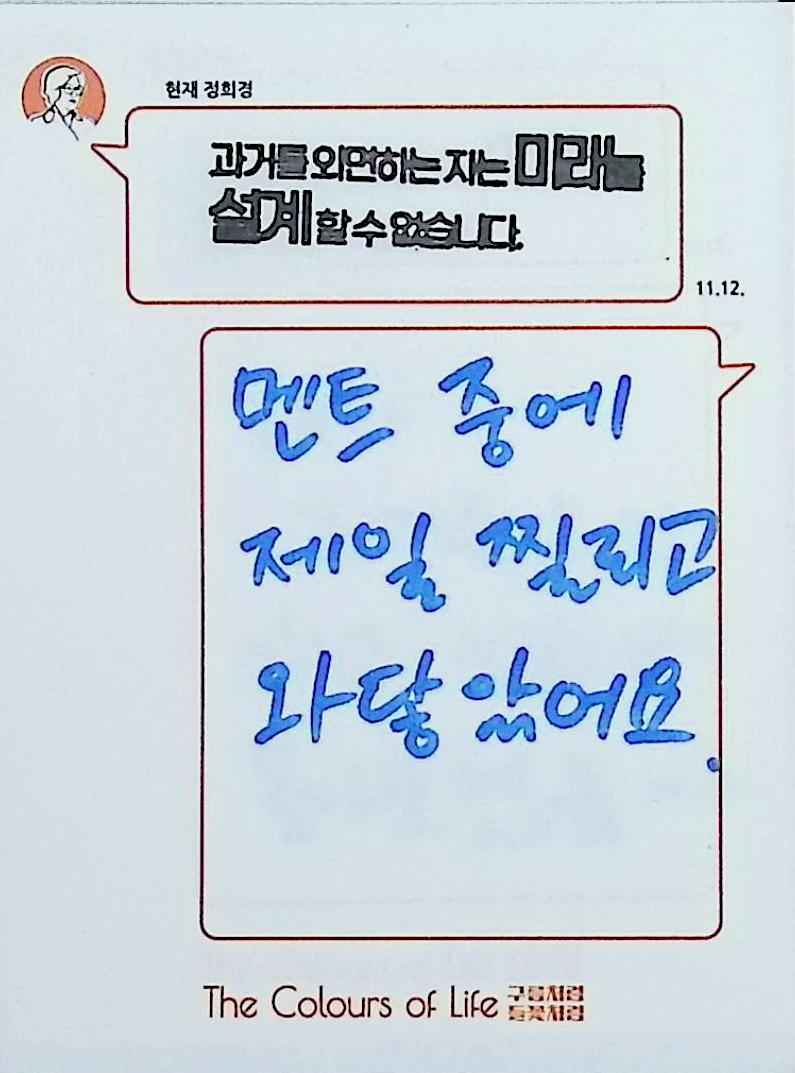 현재 정희경
과거를 외면하는 자는 미래를
설계할 수 없습니다.
11.12.
멘트 중에
제일 찔리고
와닿았어요.
The Colours of Life 구름처럼
들꽃처럼